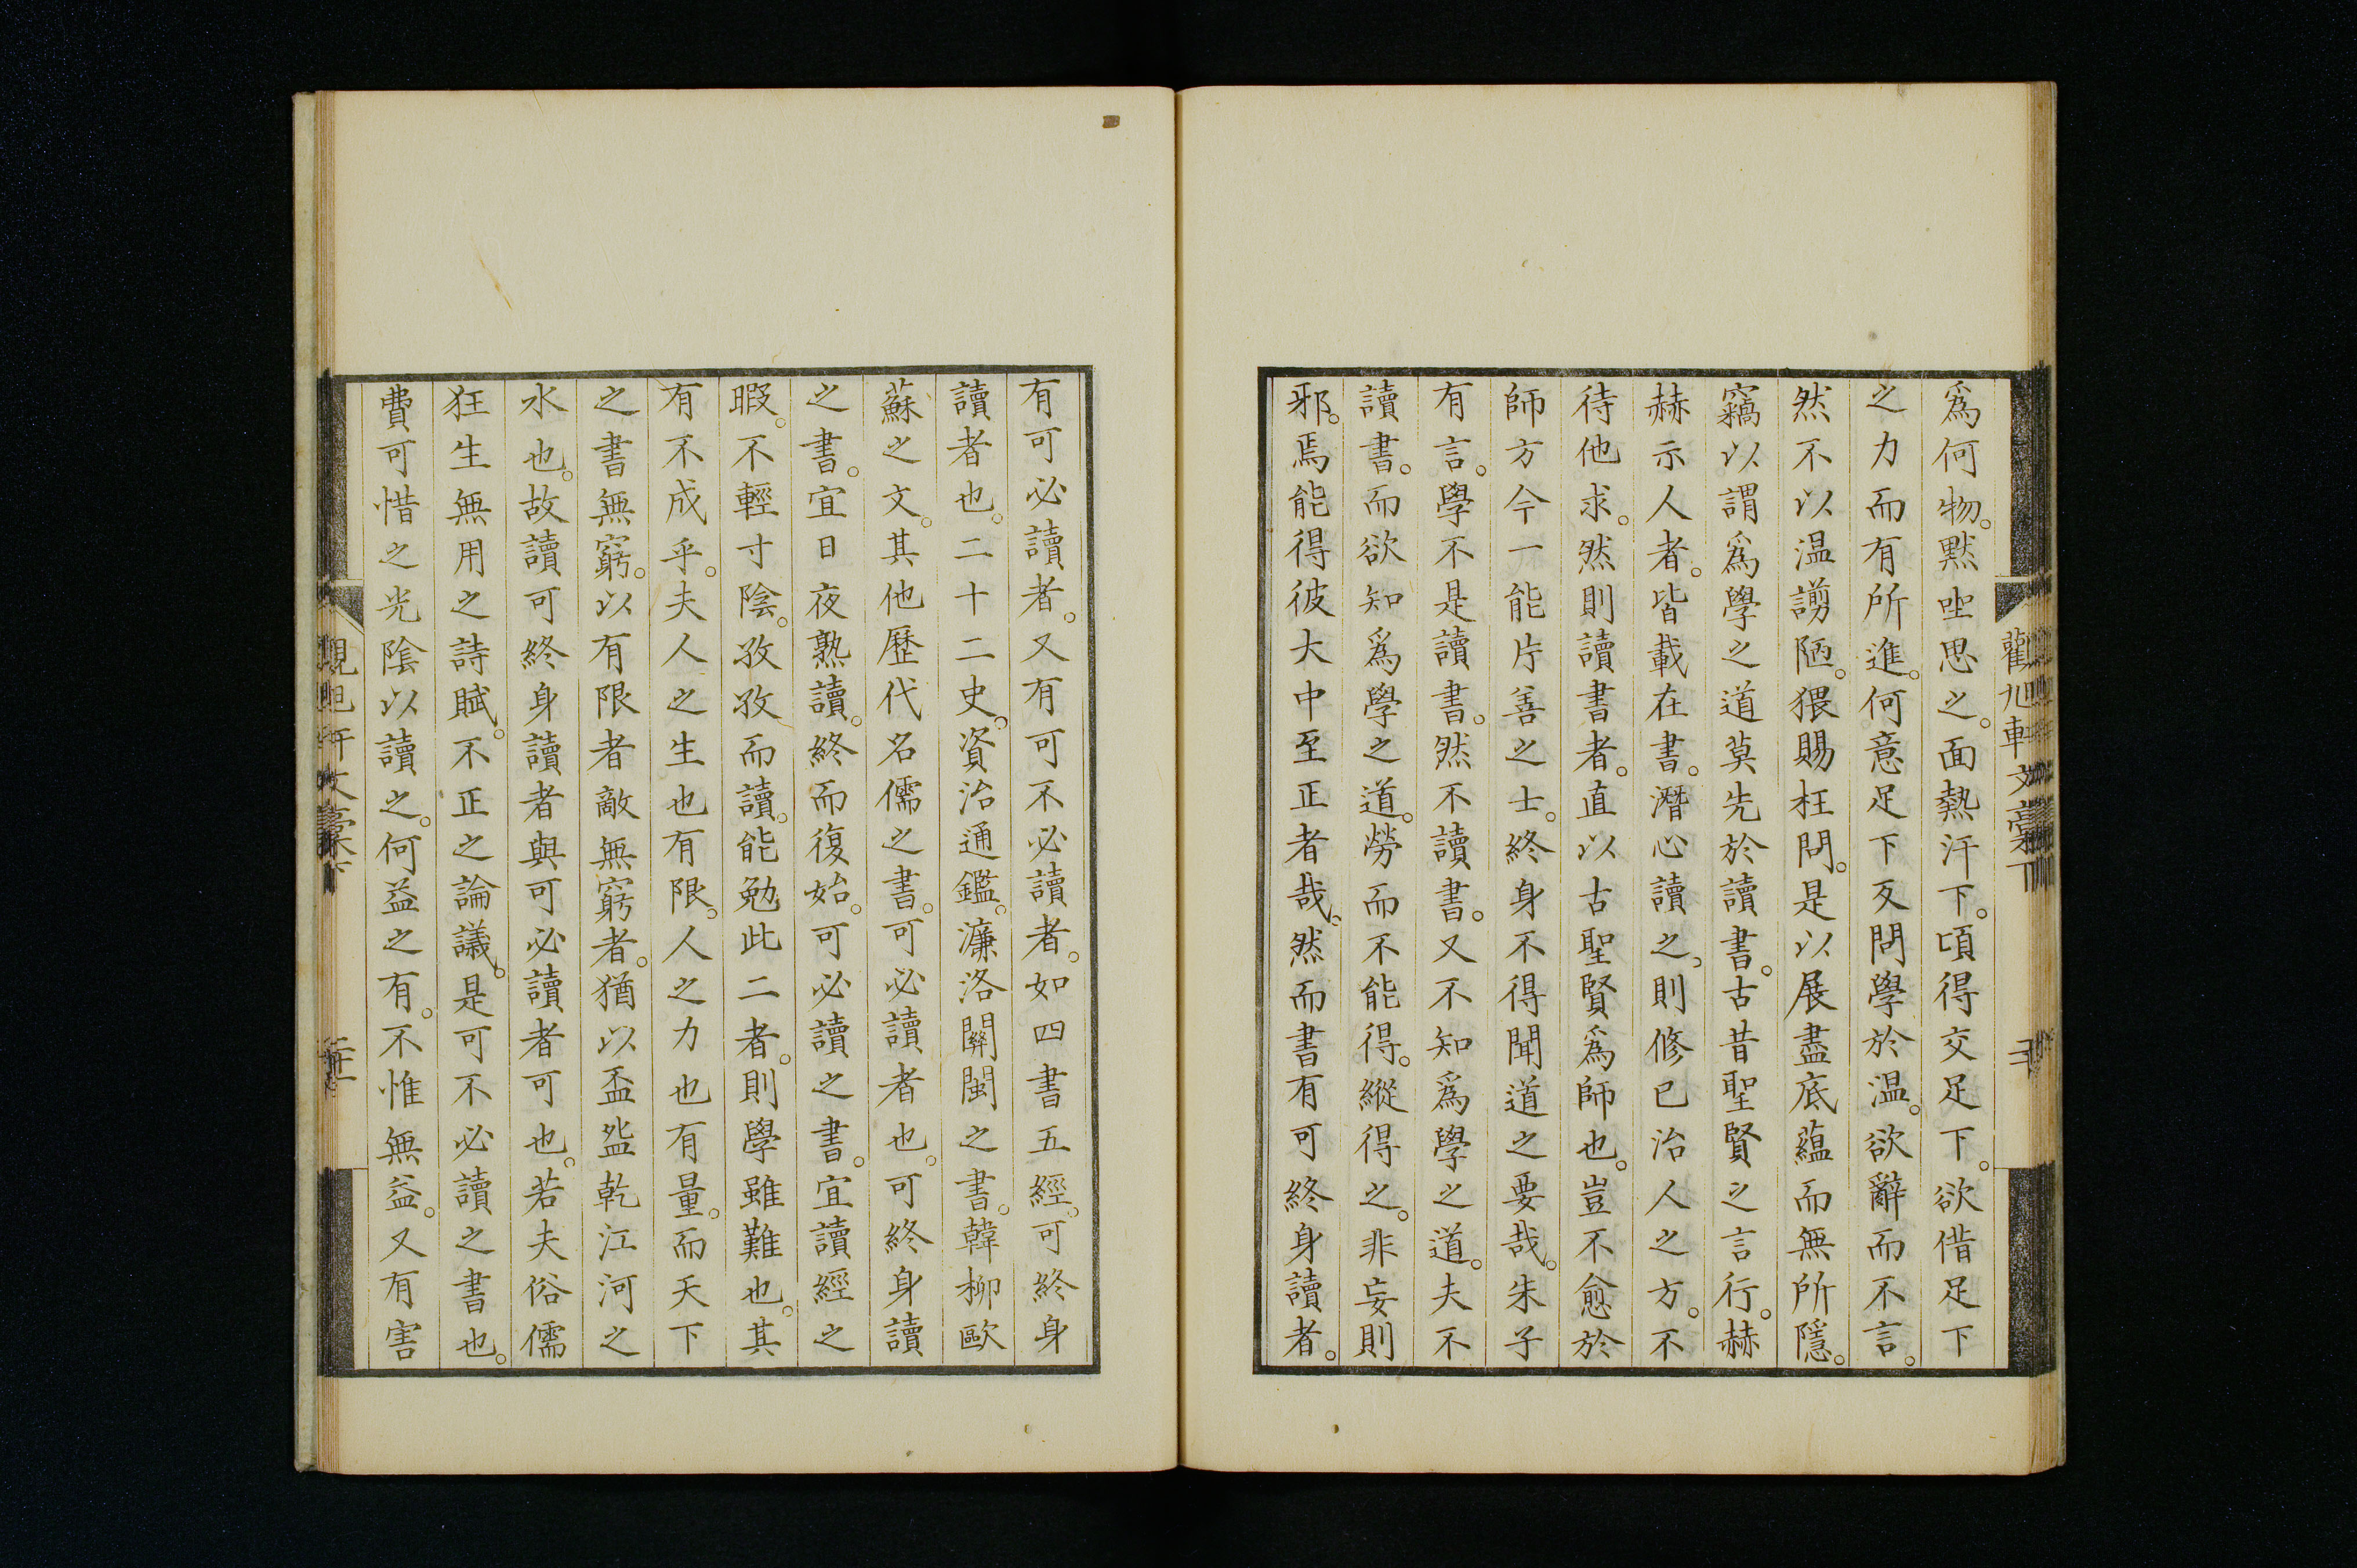 爲何物。默坐思之。面熱汗下。頃得交足下。欲借足下
之力而有所進。何意足下反問學於温。欲辭而不言。
然不以温謭陋。猥賜枉問。是以展盡底蘊而無所隱。
竊以謂爲學之道莫先於讀書。古昔聖賢之言行。赫
赫示人者。皆載在書。潛心讀之、則修己治人之方。不
待他求。然則讀書者。直以古聖賢爲師也。豈不愈於
師方今一能片善之士。終身不得聞道之要哉。朱子
有言。學不是讀書。然不讀書。又不知爲學之道。夫不
讀書。而欲知爲學之道。勞而不能得。縱得之。非妄則
邪。焉能得彼大中至正者哉、然而書有可終身讀者。
有可必讀者。又有可不必讀者。如四書五經。可終身
讀者也。二十二史。資治通鑑。濂洛關閩之書。韓柳歐
蘇之文。其他歷代名儒之書。可必讀者也。可終身讀
之書。宜日夜熟讀。終而復始。可必讀之書。宜讀經之
暇。不輕寸陰。孜孜而讀。能勉此二者。則學雖難也。其
有不成乎。夫人之生也有限。人之力也有量。而天下
之書無窮。以有限者敵無窮者。猶以盃㿿乾江河之
水也。故讀可終身讀者與可必讀者可也。若夫俗儒
狂生無用之詩賦。不正之論議。是可不必讀之書也。
費可惜之光陰以讀之。何益之有。不惟無益。又有害
觀旭軒文稾下